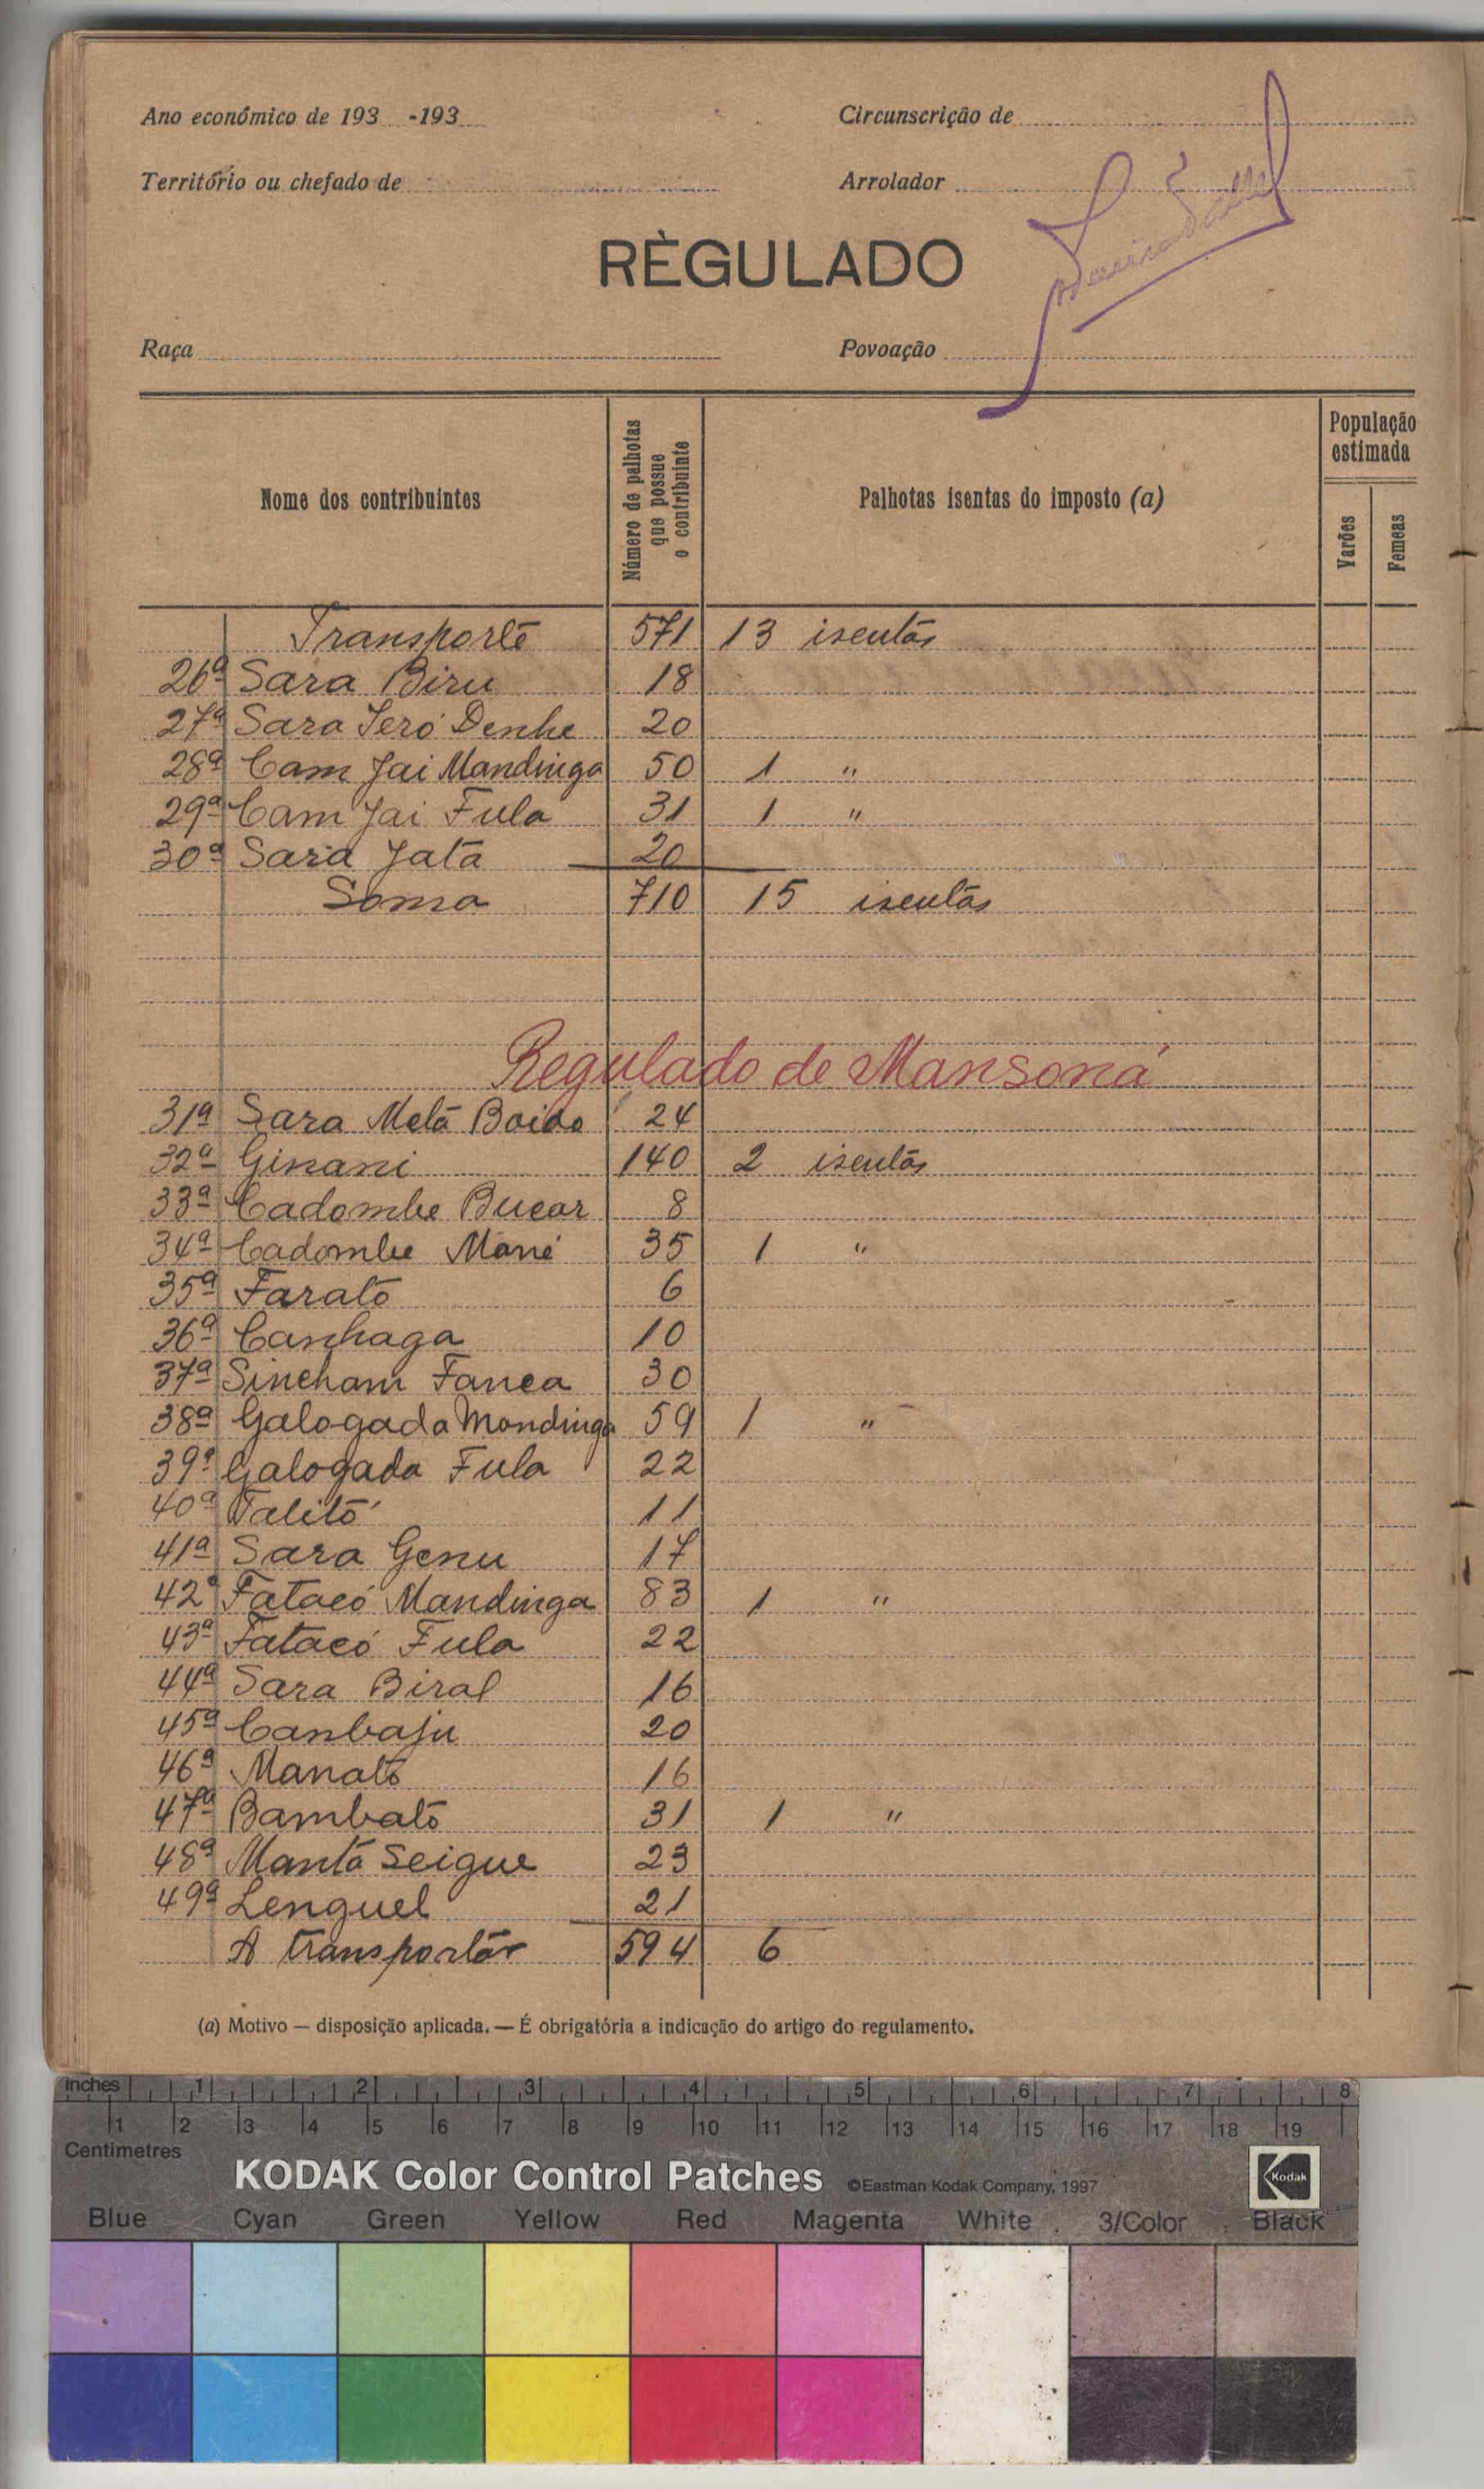 Ano económico de 193 -193
Circunscrição de
Território ou chefado de
Arrolador
RÈGULADO
Raça
Povoação
Nome dos contribuintes
Número de palhotas que possue o contribuinte
Palhotas isentas do imposto (a)
População estimada
Varões
Femeas
Transporte 571 13 isentas
26ª Sara Biru 18
27ª Sara Jeró Denhe 20
28ª Cam Jai Mandinga 50 1 "
29ª Cam Jai Fula 31 1 "
30ª Sara Jata 20
Soma 710 15 isentas
Regulado de Mansoná
31ª Sara Metá Boido 24
32ª Ginani 140 2 isentas
33ª Cadombe Bucar 8
34ª Cadombe Mané 35 1 "
35ª Farato 6
36ª Canhaga 10
37ª Sincham Fanca 30
38ª Galogada Mandinga 59 1 "
39ª Galogada Fula 22
40ª Talitó 11
41ª Sara Genu 17
42ª Fatacó Mandinga 83 1 "
43ª Fatacó Fula 22
44ª Sara Biral 16
45ª Canbaju 20
46ª Manato 16
47ª Bambato 31 1 "
48ª Manta Seigue 23
49ª Lenguel 21
A transportar 594 6
(a) Motivo — disposição aplicada. — É obrigatória a indicação do artigo do regulamento.
Inches 1 2 3 4 5 6 7 8
1 2 3 4 5 6 7 8 9 10 11 12 13 14 15 16 17 18 19
Centimetres
KODAK Color Control Patches ©Eastman Kodak Company, 1997 Kodak
Blue Cyan Green Yellow Red Magenta White 3/Color Black